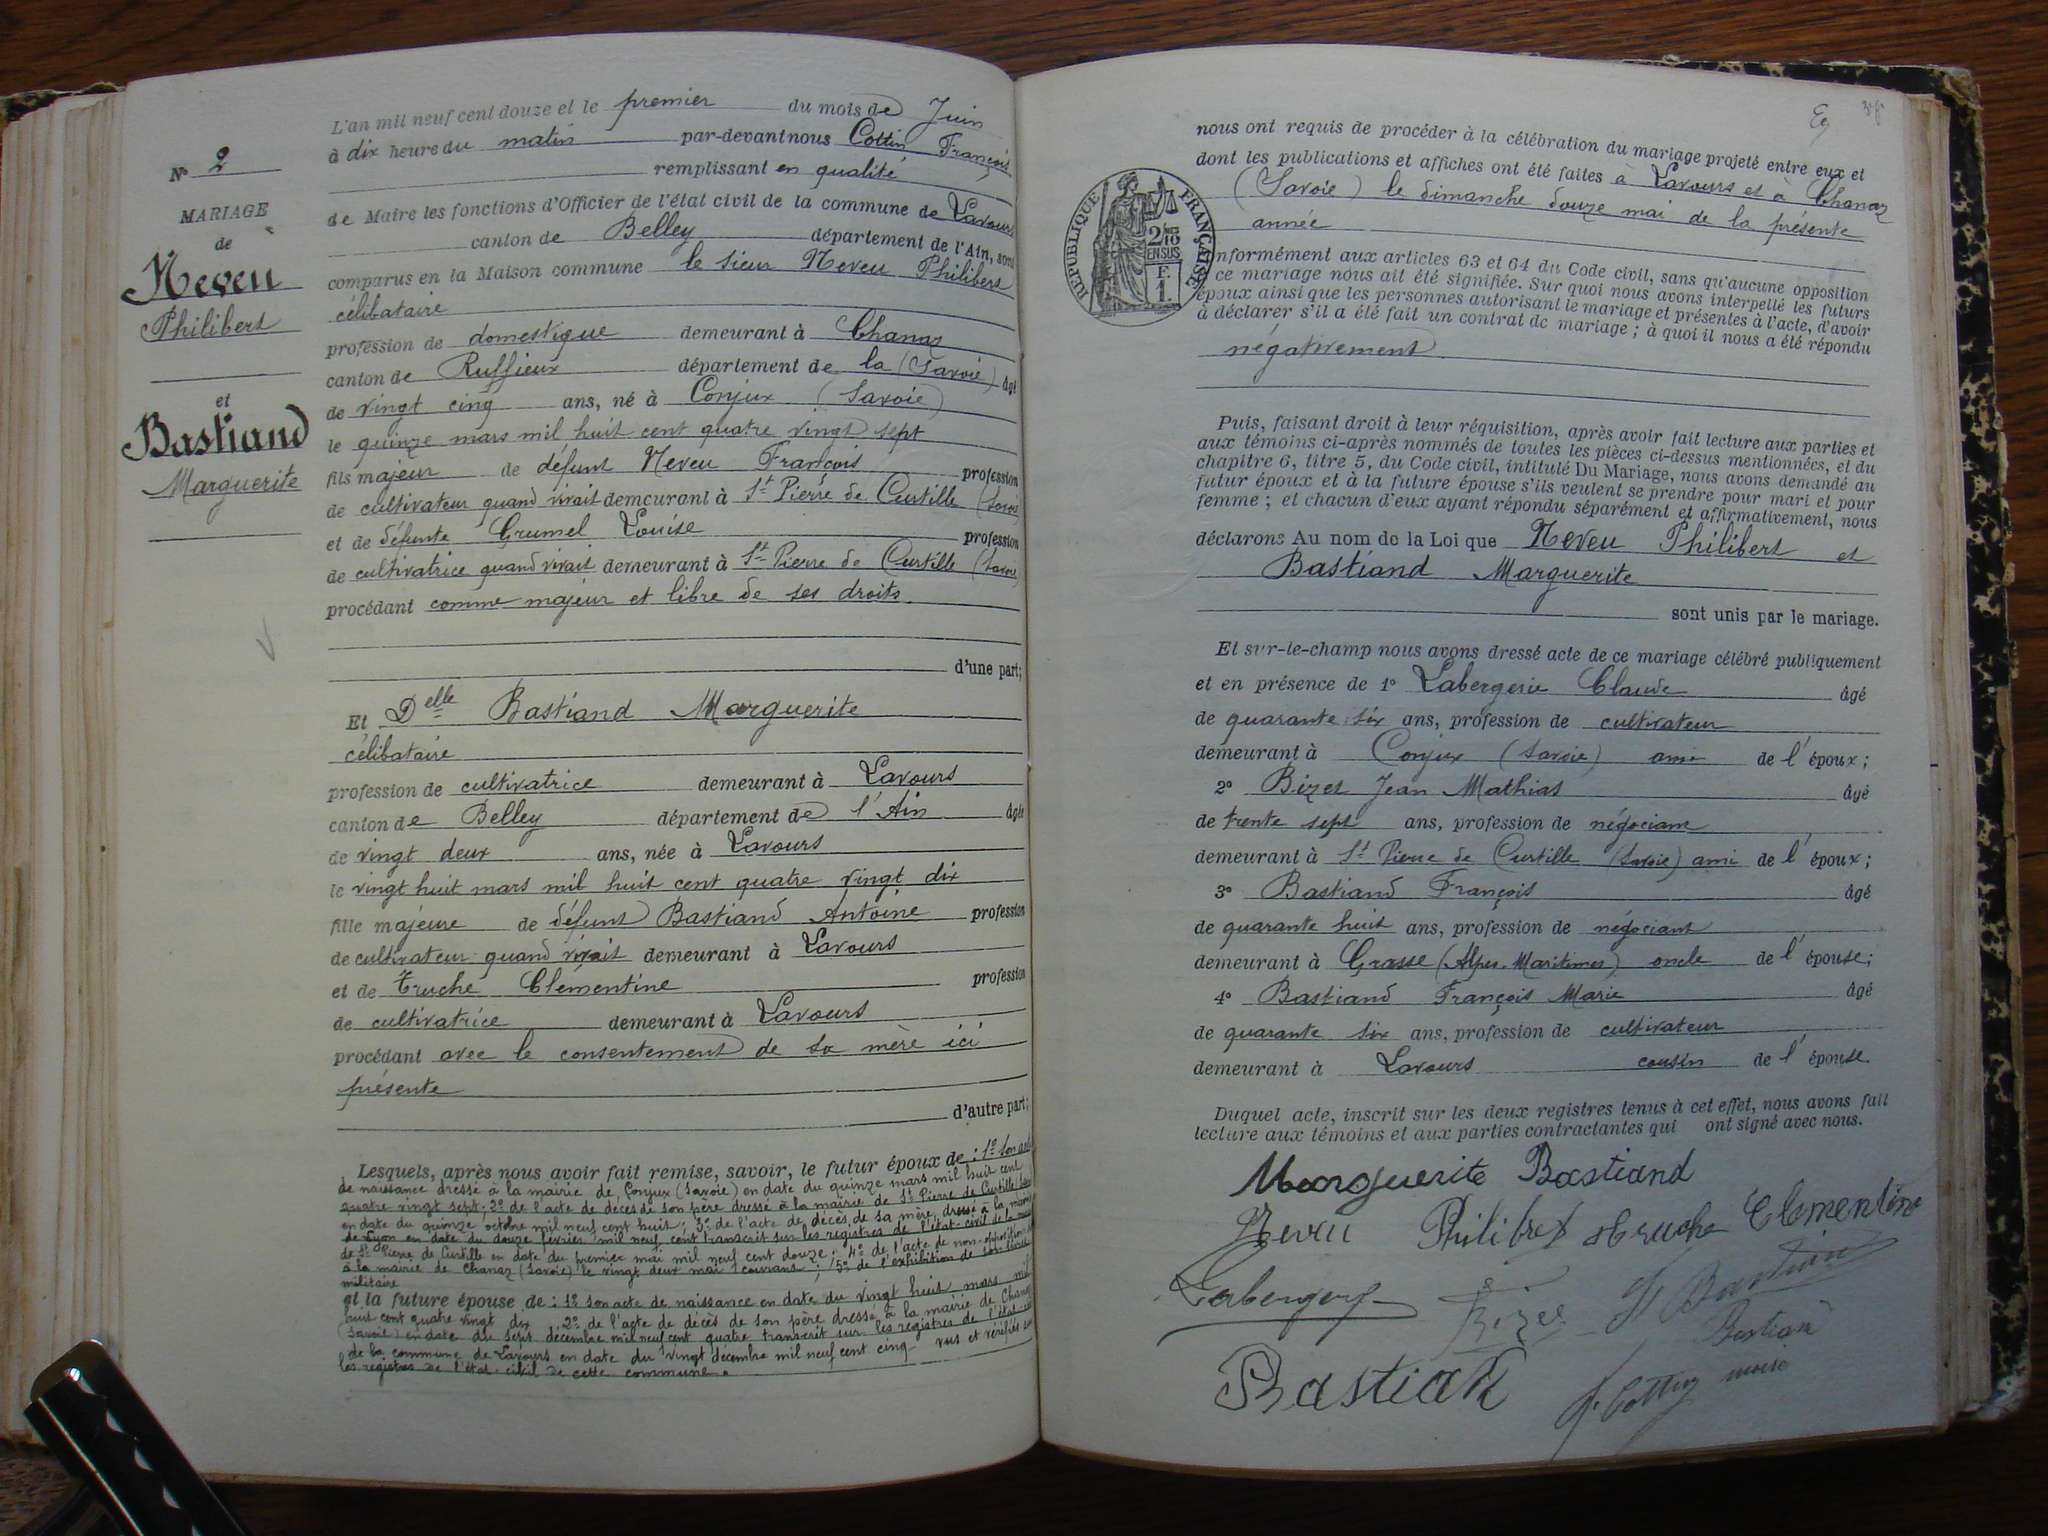 L'an mil neuf cent douze et le premier du mois de Juin
à dix heure du matin par-devant nous Cottin François
remplissant en qualité
de Maire les fonctions d'Officier de l'état civil de la commune de Lavours
canton de Belley département de l'Ain, sont
comparus en la Maison commune le sieur Neveu Philibert
célibataire
profession de domestique demeurant à Chanaz
canton de Ruffieux département de la (Savoie) âgé
de vingt cinq ans, né à Conjux (Savoie)
le quinze mars mil huit cent quatre vingt sept
fils majeur de défunt Neveu François profession
de cultivateur quand vivait demeurant à St Pierre de Curtille (Savoie)
et de défunte Grumel Louise profession
de cultivatrice quand vivait demeurant à St Pierre de Curtille (Savoie)
procédant comme majeur et libre de ses droits.
d'une part;
Et Delle Bastiand Marguerite
célibataire
profession de cultivatrice demeurant à Lavours
canton de Belley département de l'Ain âgée
de vingt deux ans, née à Lavours
le vingt huit mars mil huit cent quatre vingt dix
fille majeure de défunt Bastiand Antoine profession
de cultivateur quand vivait demeurant à Lavours
et de Truche Clémentine profession
de cultivatrice demeurant à Lavours
procédant avec le consentement de sa mère ici
présente
d'autre part;
Lesquels, après nous avoir fait remise, savoir, le futur époux de : 1º Son acte
de naissance dressé à la mairie de Conjux (Savoie) en date du quinze mars mil huit cent
quatre vingt sept; 2º de l'acte de décès de son père dressé à la mairie de St Pierre de Curtille
en date du quinze octobre mil neuf cent huit; 3º de l'acte de décès de sa mère dressé à la mairie
de Lyon en date du douze février mil neuf cent transcrit sur les registres de l'état-civil de la
de St Pierre de Curtille en date du premier mai mil neuf cent douze; 4º de l'acte de non-opposition
à la mairie de Chanaz (Savoie) le vingt deux mai courant; 5º de l'exhibition de son livret
militaire
et la future épouse de : 1º Son acte de naissance en date du vingt huit mars mil
huit cent quatre vingt dix 2º de l'acte de décès de son père dressé à la mairie de Chanaz
(Savoie) en date du sept décembre mil neuf cent quatre transcrit sur les registres de l'état-civil
de la commune de Lavours en date du vingt décembre mil neuf cent cinq vus et vérifiés sur
les registres de l'état-civil de cette commune.
Nº 2
MARIAGE
de
Neveu
Philibert
et
Bastiand
Marguerite
nous ont requis de procéder à la célébration du mariage projeté entre eux et
dont les publications et affiches ont été faites à Lavours et à Chanaz
(Savoie) le dimanche douze mai de la présente
année
RÉPUBLIQUE FRANÇAISE
2/10 EN SUS
F.
1.
nformément aux articles 63 et 64 du Code civil, sans qu'aucune opposition
ce mariage nous ait été signifiée. Sur quoi nous avons interpellé les futurs
époux ainsi que les personnes autorisant le mariage et présentes à l'acte, d'avoir
à déclarer s'il a été fait un contrat de mariage; à quoi il nous a été répondu
négativement
Puis, faisant droit à leur réquisition, après avoir fait lecture aux parties et
aux témoins ci-après nommés de toutes les pièces ci-dessus mentionnées, et du
chapitre 6, titre 5, du Code civil, intitulé Du Mariage, nous avons demandé au
futur époux et à la future épouse s'ils veulent se prendre pour mari et pour
femme; et chacun d'eux ayant répondu séparément et affirmativement, nous
déclarons Au nom de la Loi que Neveu Philibert et
Bastiand Marguerite
sont unis par le mariage.
Et sur-le-champ nous avons dressé acte de ce mariage célébré publiquement
et en présence de 1º Labergerie Claude âgé
de quarante six ans, profession de cultivateur
demeurant à Conjux (Savoie) ami de l'époux;
2º Bizet Jean Mathias âgé
de trente sept ans, profession de négociant
demeurant à St Pierre de Curtille (Savoie) ami de l'époux;
3º Bastiand François âgé
de quarante huit ans, profession de négociant
demeurant à Grasse (Alpes-Maritimes) oncle de l'épouse;
4º Bastiand François Marie âgé
de quarante six ans, profession de cultivateur
demeurant à Lavours cousin de l'épouse.
Duquel acte, inscrit sur les deux registres tenus à cet effet, nous avons fait
lecture aux témoins et aux parties contractantes qui ont signé avec nous.
Marguerite Bastiand
Neveu Philibert Truche Clementine
Bizet
Bastiand
F. Cottin